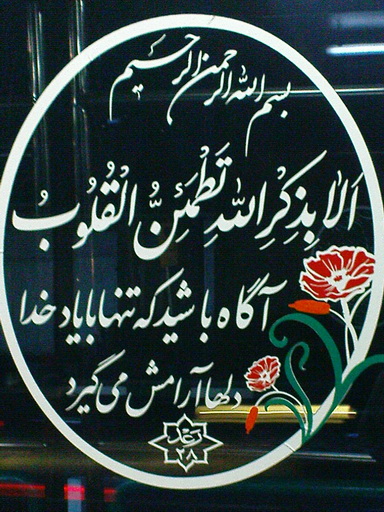 بسم الله الرحمن الرحیم
اَلا بِذِکْرِ اللهِ تَطْمَئِنُّ الْقُلُوبُ
آگاه باشید که تنها با یاد خدا
دلها آرامش می‌گیرد
رعد
۲۸